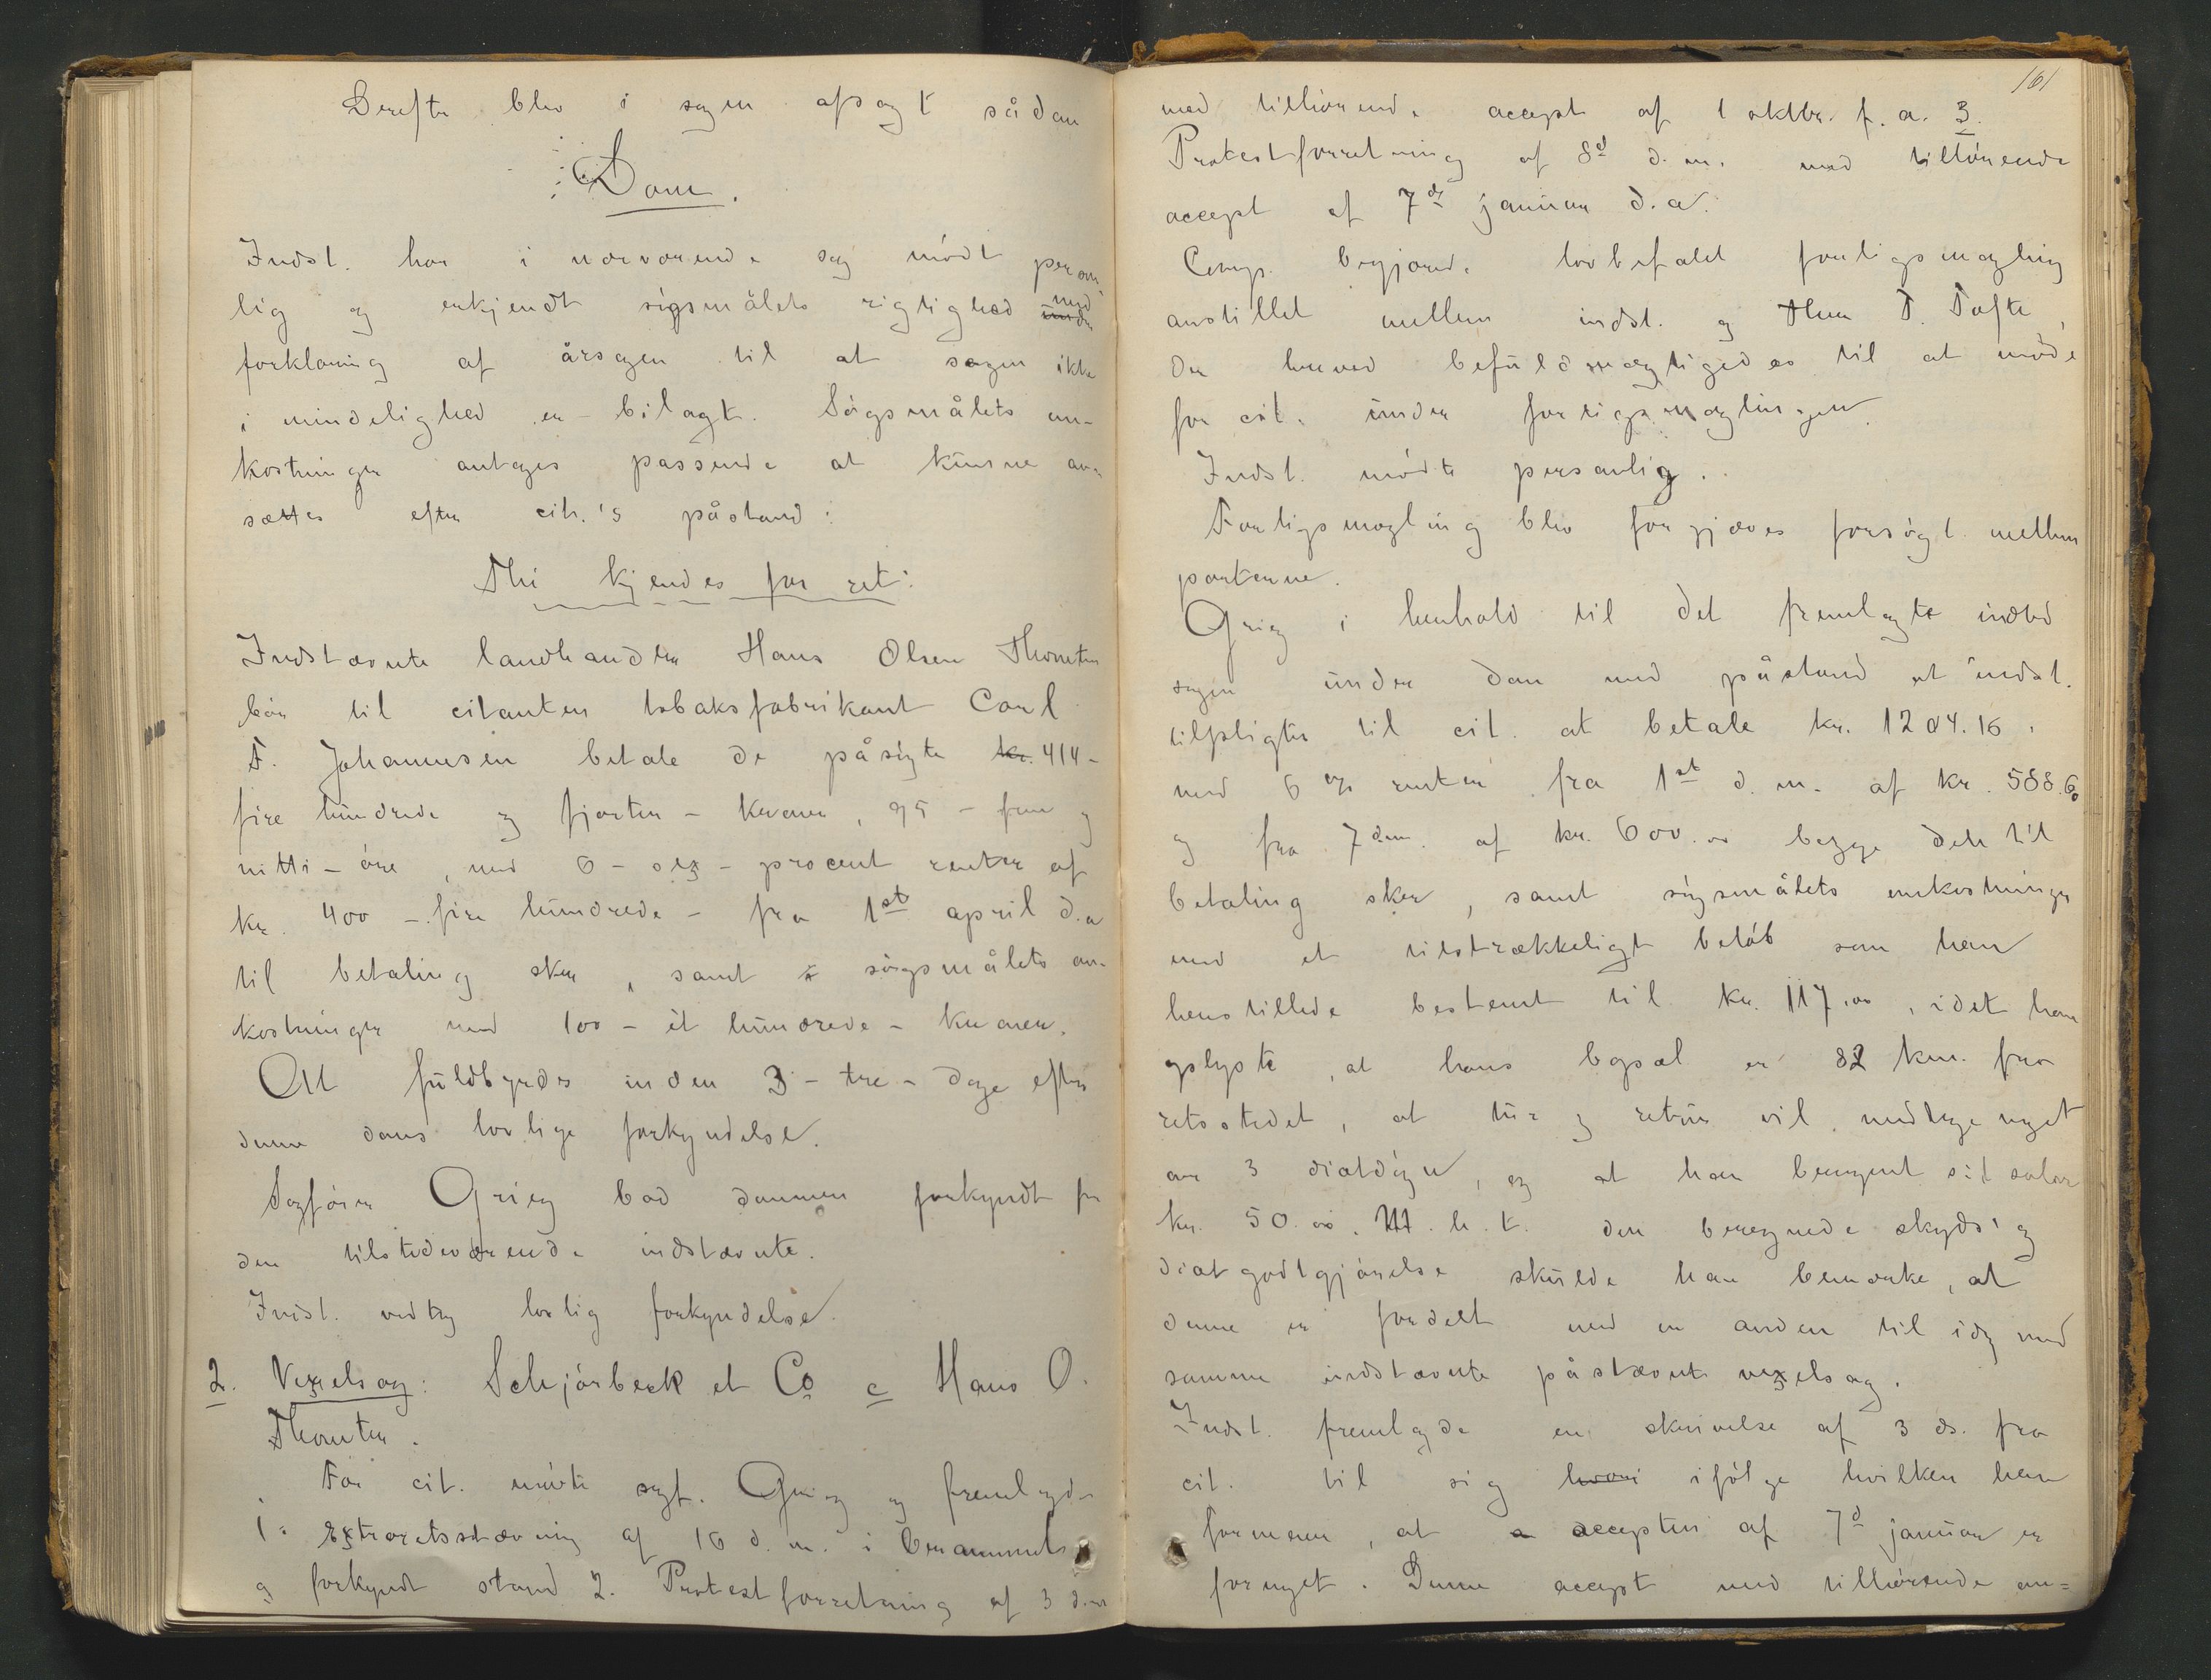 Derefter blev i sagen afsagt sådan
Dom.
Indst. har i nærværende sag mödt person-
lig og erkjendt sögsmålets rigtighed med
forklaring af årsagen til at sagen ikke
i mindelighed er bilagt. Sögsmålets om-
kostninger antages passende at kunne an-
sættes efter cit.'s påstand:
Thi kjendes for ret:
Indstævnte landhandler Hans Olsen Thomten
bör til citanten tobaksfabrikant Carl
F. Johannesen betale de påsögte kr. 414-
fire hundrede og fjorten - kroner, 95 - fem og
nitti - öre, med 6 - sex - procent renter af
kr. 400 - fire hundrede - fra 1st april d.a
til betaling sker, samt sögsmålets om-
kostninger med 100 - ét hundrede - kroner.
Alt fuldbyrdes inden 3 - tre - dage efter
denne doms lovlige forkyndelse.
Sagförer Grieg bad dommen forkyndt for
den tilstedeværende indstævnte.
Indst. vedtog lovlig forkyndelse.
2. Vexelsag: Schjörbeck et Co c Hans O.
Thomten.
For cit. mödte sagf. Grieg og fremlagde
1. Extraretsstævning af 16 d.m. i berammet
og forkyndt stand 2. Protestforretning af 3 d.m
161
med tilhörende accept af 1 oktbr. f.a. 3.
Protestforretning af 8d d.m. med tilhörende
accept af 7de januar d.a.
Comp. begjærede lovbefalet forligsmægling
anstillet mellem indst. og Herr T. Tofte,
der herved befuldmægtigedes til at möde
for cit. under forligsmæglingen.
Indst. mödte personlig.
Forligsmægling blev forgjæves forsögt mellem
parterne.
Grieg i henhold til det fremlagte indlod
sagen under dom med påstand at indst.
tilpligtes til cit. at betale kr. 1204.16.
med 6 % renter fra 1st d.m. af kr. 588.60
og fra 7 d.m. af kr. 600.00 begge dele til
betaling sker, samt sögsmålets omkostninger
med et tilstrækkeligt belöb som han
henstillede bestemt til kr. 117.00, idet han
oplyste, at hans bopæl er 82 km. fra
retsstedet, at tur og retur vil medtage noget
over 3 diætdögn, og at han beregnet sit salær
kr. 50.00. M.h.t. den beregnede skyds og
diætgodtgjörelse skulde han bemærke, at
denne er fordelt med en anden til idag mod
samme indstævnte påstævnt vexelsag.
Indst. fremlagde en skrivelse af 3 ds. fra
cit. til sig hvori ifölge hvilken han
formener, at a accepten af 7d januar er
fornyet. Denne accept med tilhörende an=